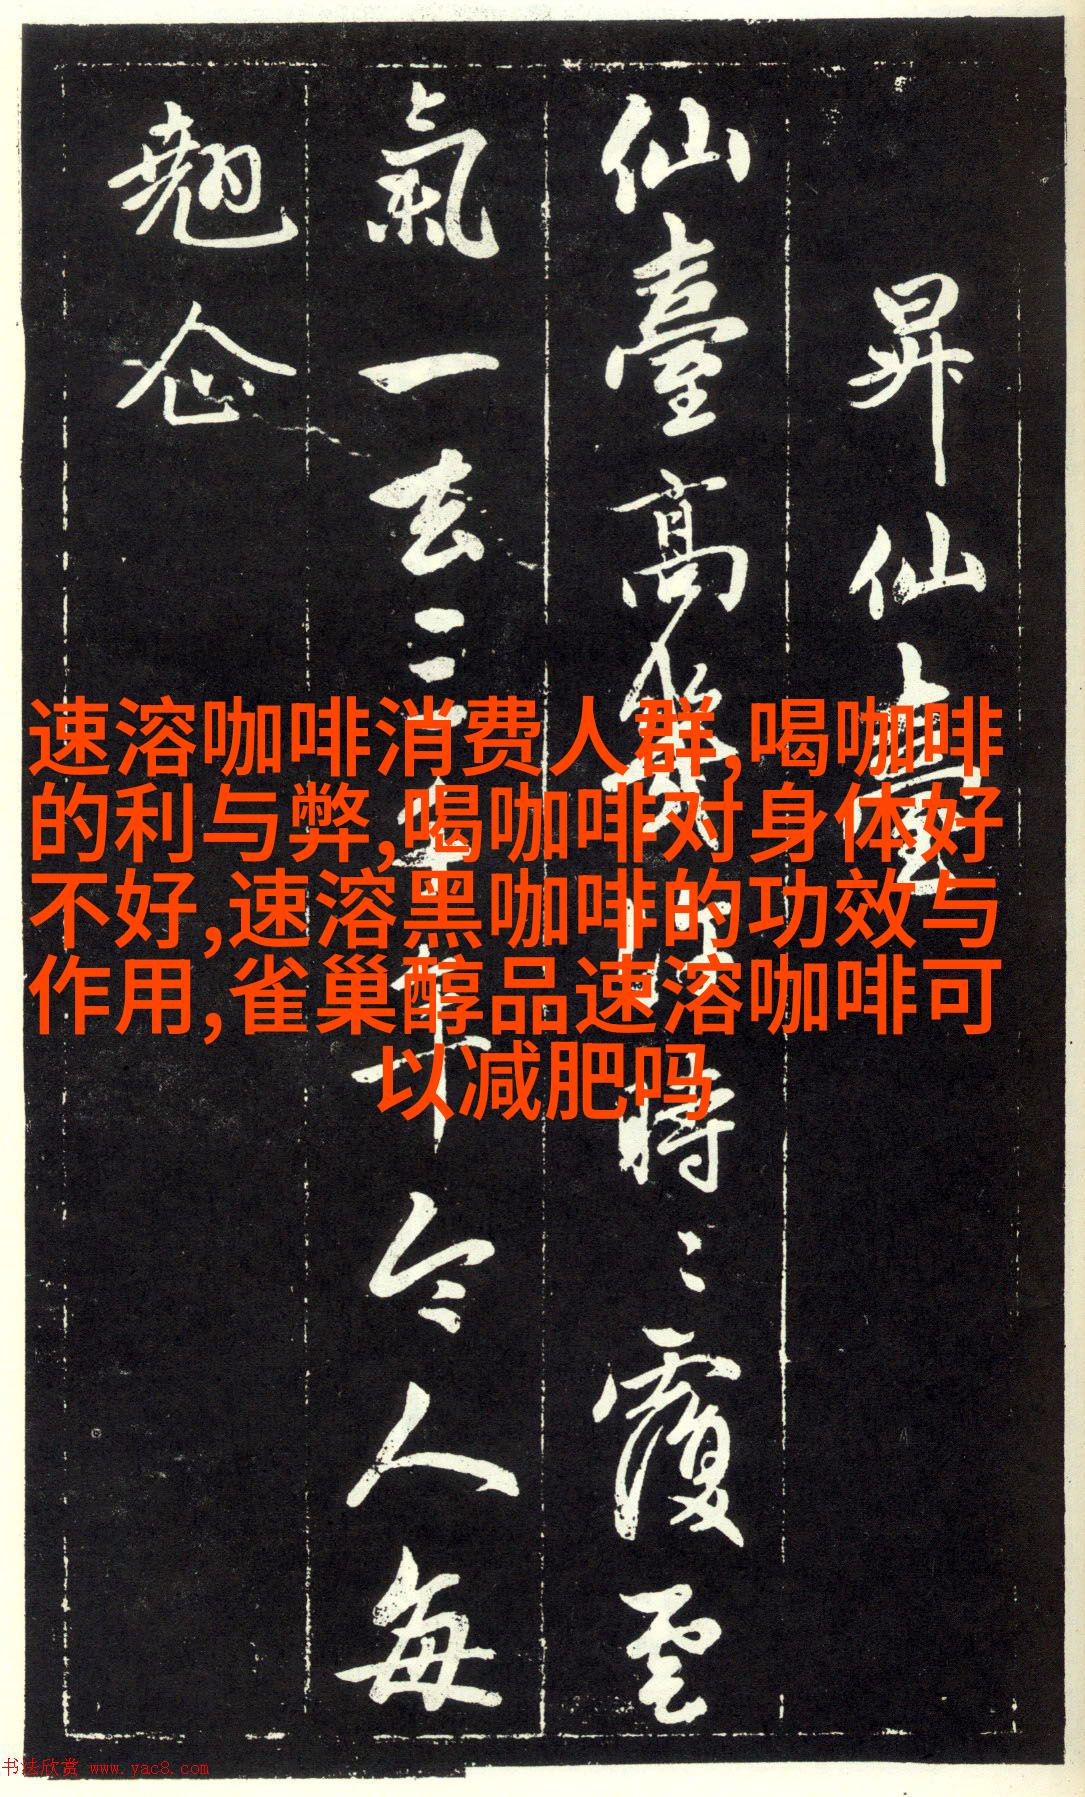 昇仙臺
仙臺高幾許時〻覆雲
氣一去三千年今人每
翹企
速溶咖啡消费人群,喝咖啡
的利与弊,喝咖啡对身体好
不好,速溶黑咖啡的功效与
作用,雀巢醇品速溶咖啡可
以减肥吗
书法欣赏 www.yac8.com